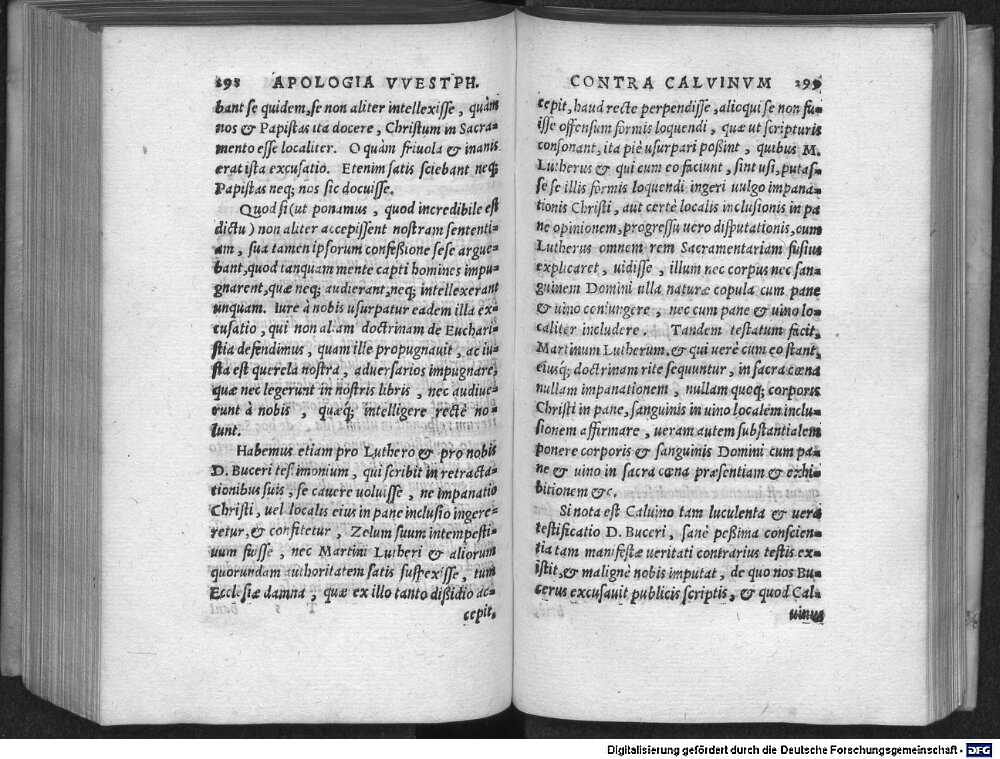 298 APOLOGIA VVESTPH.
bant se quidem, se non aliter intellexisse, quàm
nos & Papistas ita docere, Christum in Sacra-
mento esse localiter. O quàm friuola & inanis
erat ista excusatio. Etenim satis sciebant neq;
Papistas neq; nos sic docuisse.
Quod si (ut ponamus, quod incredibile est
dictu) non aliter accepissent nostram sententi-
am, sua tamen ipsorum confeßione sese argue-
bant, quod tanquam mente capti homines impu-
gnarent, quæ neq; audierant, neq; intellexerant
unquam. Iure à nobis usurpatur eadem illa ex-
cusatio, qui non aliam doctrinam de Euchari-
stia defendimus, quam ille propugnauit, ac iu-
sta est querela nostra, aduersarios impugnare,
quæ nec legerunt in nostris libris, nec audiue-
runt à nobis, quæq; intelligere rectè no-
lunt.
Habemus etiam pro Luthero & pro nobis
D. Buceri testimonium, qui scribit in retracta-
tionibus suis, se cauere uoluisse, ne impanatio
Christi, uel localis eius in pane inclusio ingere-
retur, & confitetur, Zelum suum intempesti-
uum fuisse, nec Martini Lutheri & aliorum
quorundam authoritatem satis suspexisse, tum
Ecclesiæ damna, quæ ex illo tanto dißidio ac-
cepit,
CONTRA CALVINVM 299
cepit, haud recte perpendisse, alioqui se non fu-
isse offensum formis loquendi, quæ ut scripturis
consonant, ita piè usurpari poßint, quibus M.
Lutherus & qui cum eo faciunt, sint usi, putas-
se se illis formis loquendi ingeri uulgo impana-
tionis Christi, aut certè localis inclusionis in pa
ne opinionem, progressu uero disputationis, cum
Lutherus omnem rem Sacramentariam fusius
explicaret, uidisse, illum nec corpus nec san-
guinem Domini ulla naturæ copula cum pane
& uino coniungere, nec cum pane & uino lo-
caliter includere. Tandem testatum facit,
Martinum Lutherum, & qui uerè cum eo stant,
eiusq; doctrinam rite sequuntur, in sacra cœna
nullam impanationem, nullam quoq; corporis
Christi in pane, sanguinis in uino localem inclu-
sionem affirmare, ueram autem substantialem
ponere corporis & sanguinis Domini cum pa-
ne & uino in sacra cœna præsentiam & exhi-
bitionem &c.
Si nota est Caluino tam luculenta & uera
testificatio D. Buceri, sanè peßima conscien-
tia tam manifestæ ueritati contrarius testis ex-
istit, & malignè nobis imputat, de quo nos Bu-
cerus excusauit publicis scriptis, & quod Cal-
uinus
Digitalisierung gefördert durch die Deutsche Forschungsgemeinschaft - DFG